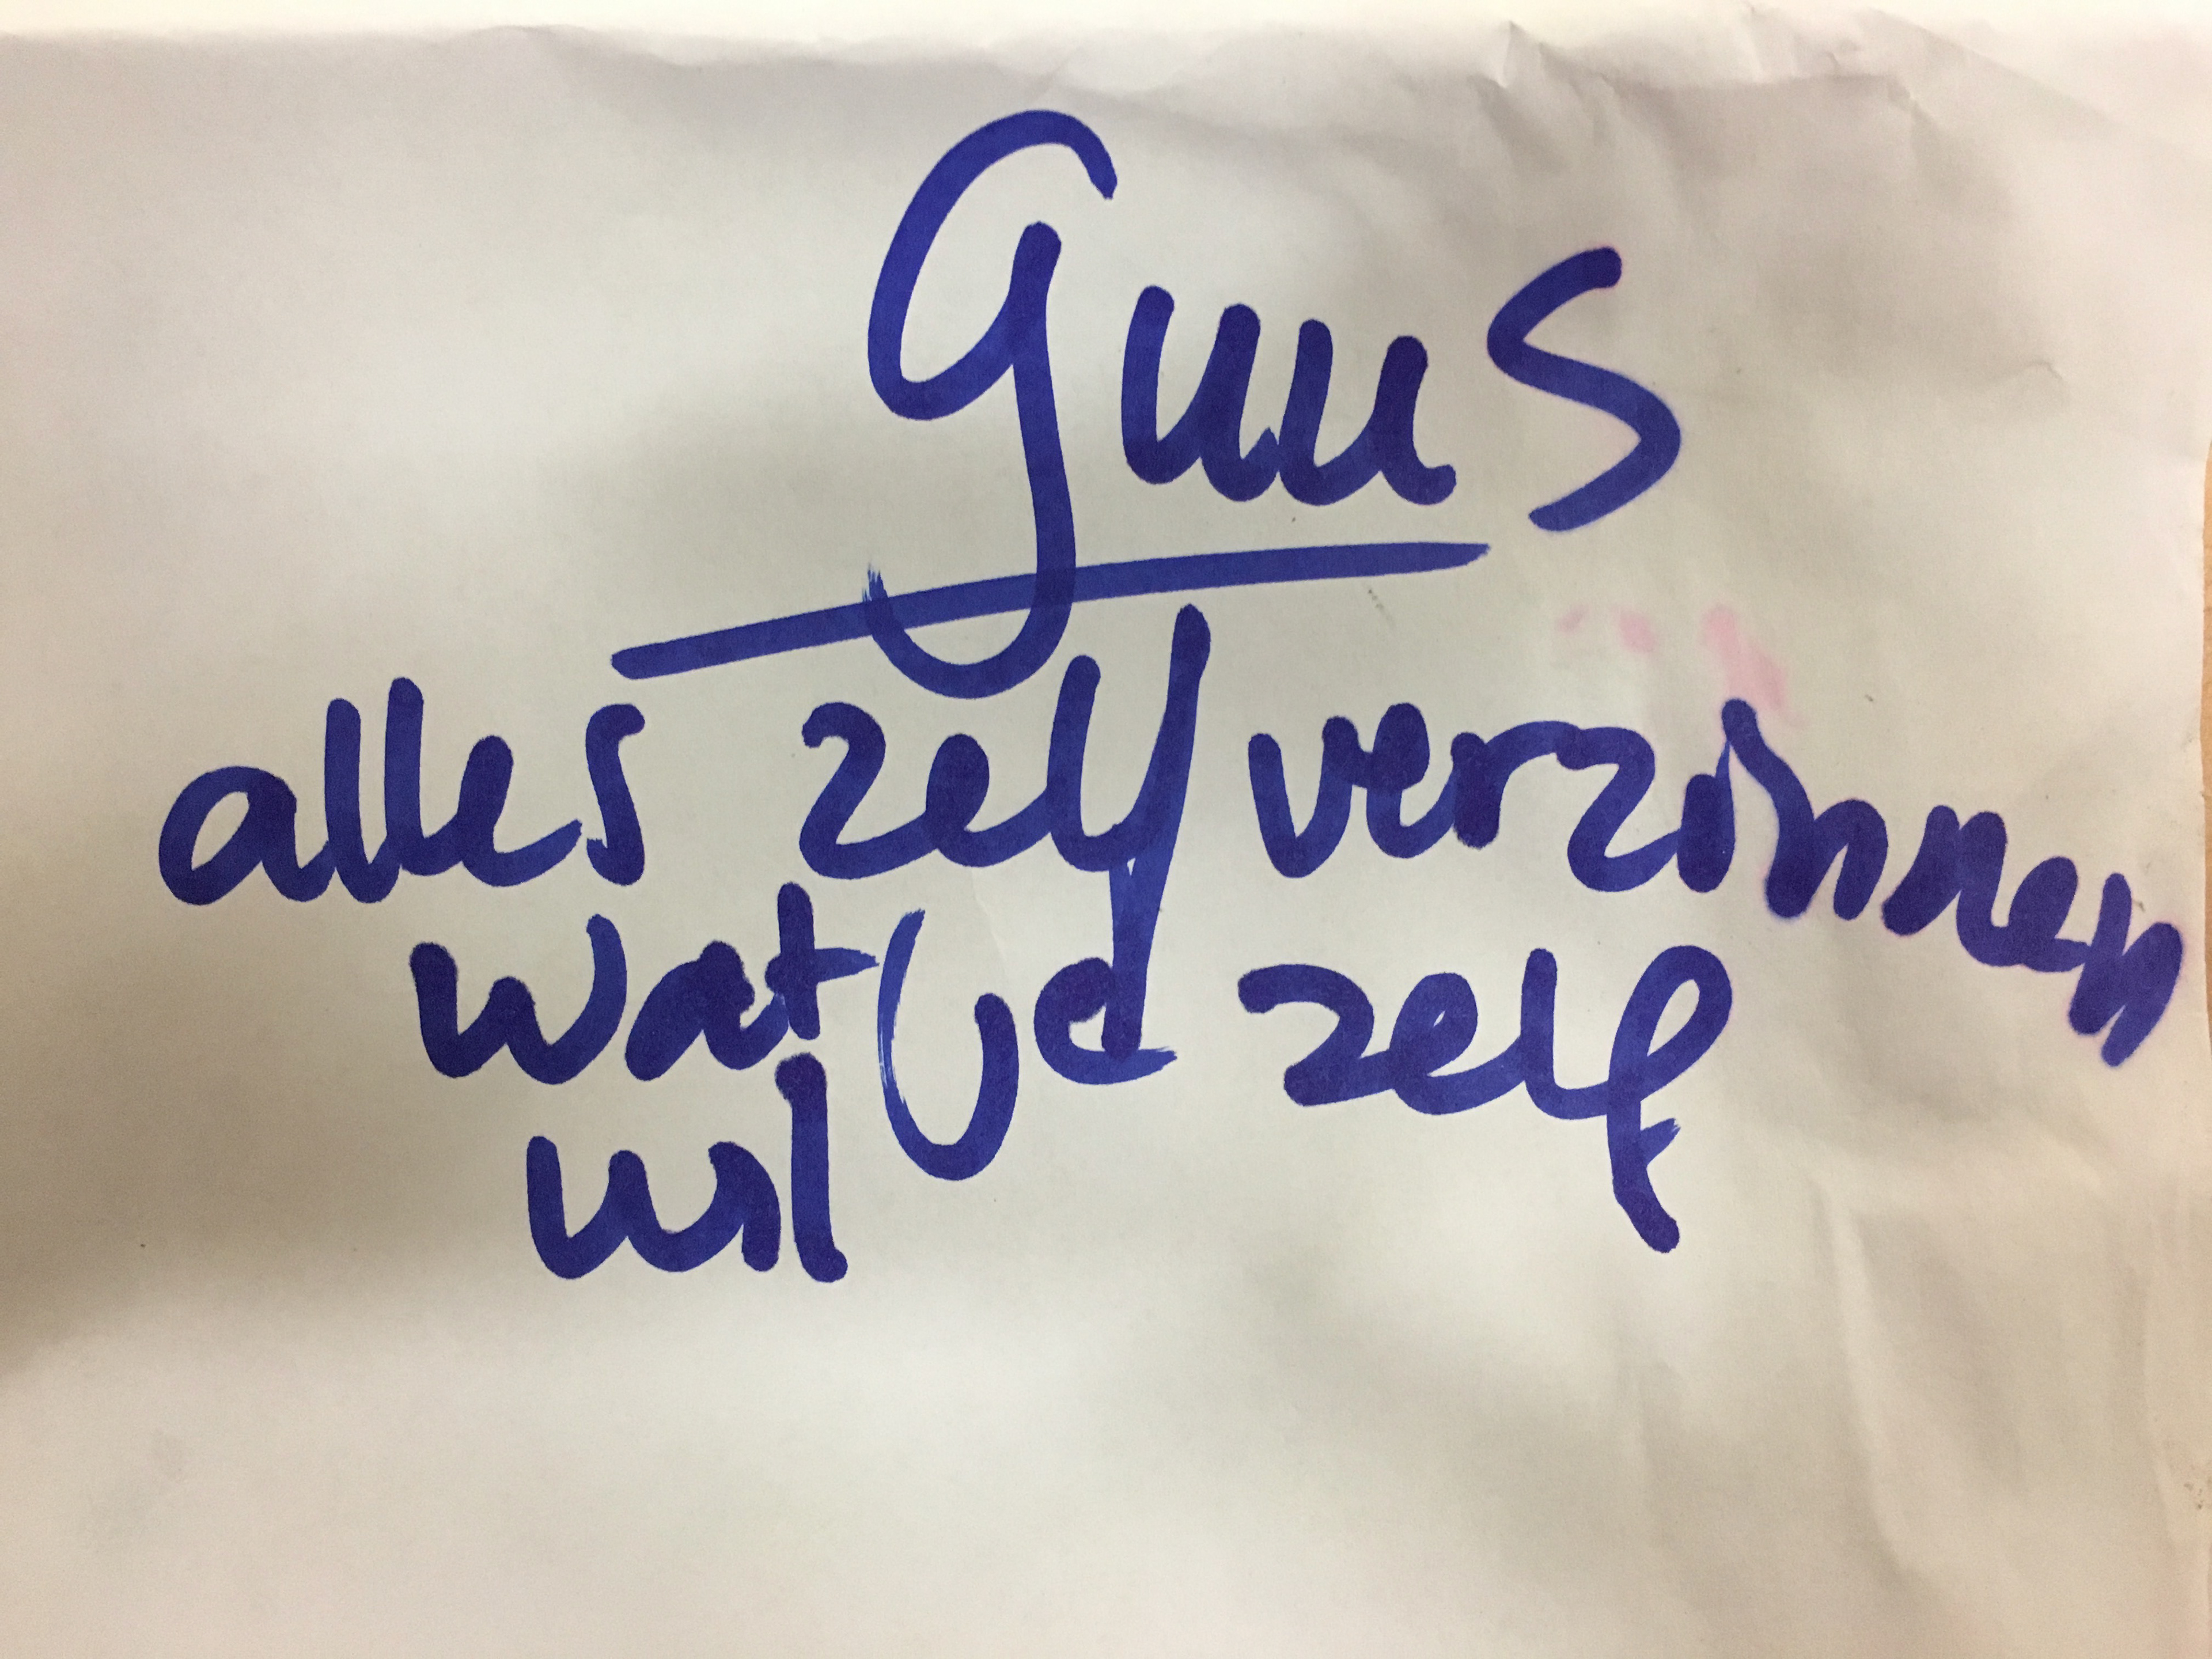 Guus
alles zelf verzinnen
wat je zelf
wil